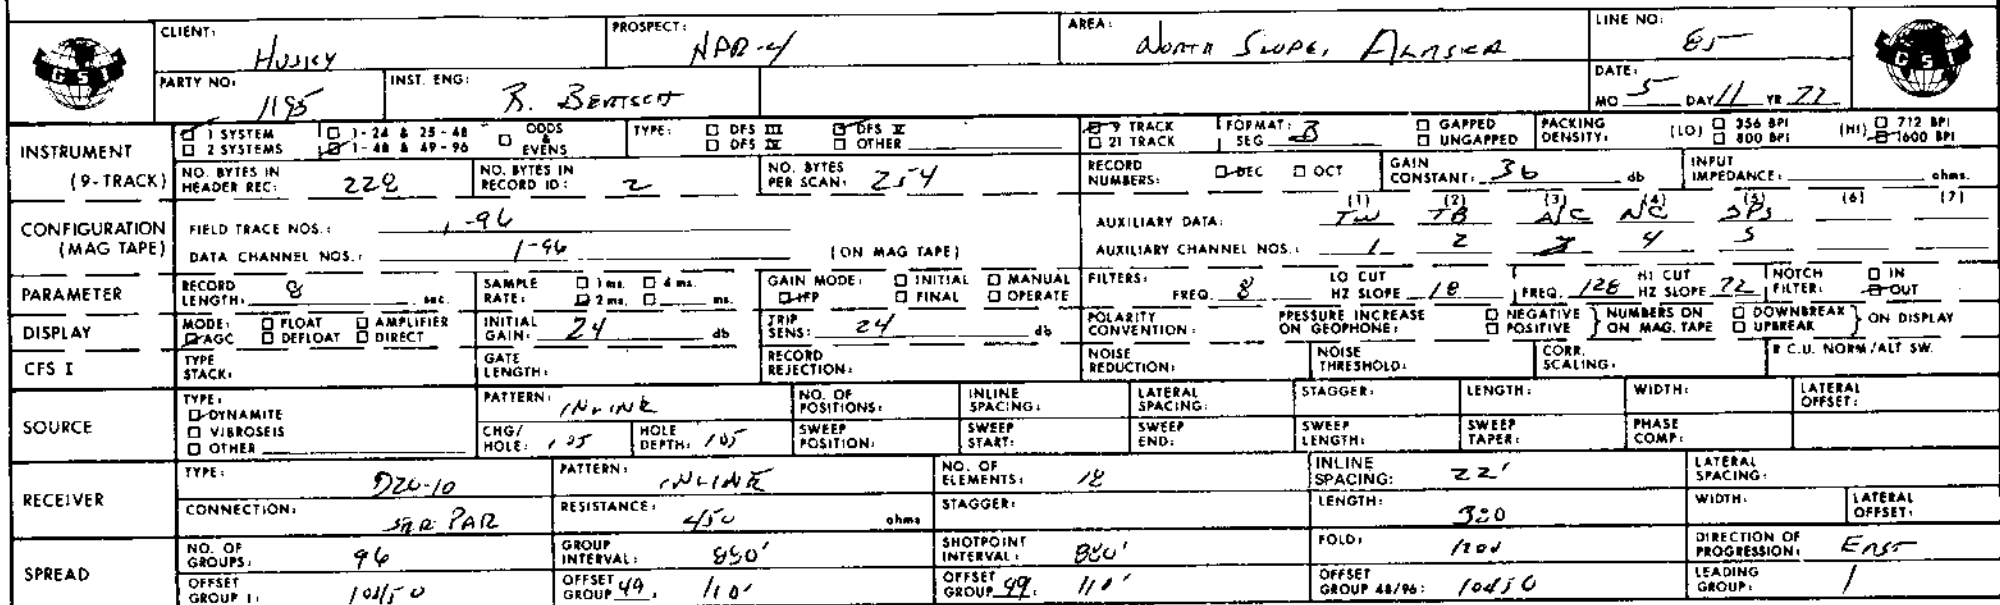 CLIENT: HUSKY PROSPECT: NPR-4 AREA: NORTH SLOPE, ALASKA LINE NO: 85
GSI GSI
PARTY NO. 1195 INST. ENG: R. BERTSCH DATE: MO 5 DAY 11 YR 77
INSTRUMENT (9-TRACK)
1 SYSTEM 1-24 & 25-48 ODDS & EVENS TYPE: DFS III DFS V 9 TRACK FORMAT: SEG B GAPPED PACKING DENSITY: (LO) 356 BPI (HI) 712 BPI
2 SYSTEMS 1-48 & 49-96 DFS IV OTHER 21 TRACK UNGAPPED 800 BPI 1600 BPI
NO. BYTES IN HEADER REC: 228 NO. BYTES IN RECORD ID: 2 NO. BYTES PER SCAN: 254 RECORD NUMBERS: DEC OCT GAIN CONSTANT: 36 db INPUT IMPEDANCE: ohms.
CONFIGURATION (MAG TAPE)
FIELD TRACE NOS.: 1-96 AUXILIARY DATA: (1) TW (2) TB (3) A/C (4) (5) (6) (7)
DATA CHANNEL NOS.: 1-96 (ON MAG TAPE) AUXILIARY CHANNEL NOS.: 1 2 3 4 5
PARAMETER RECORD LENGTH: 8 sec. SAMPLE RATE: 1 ms. 4 ms. 2 ms. ms. GAIN MODE: INITIAL MANUAL IFP FINAL OPERATE FILTERS: FREQ. 8 LO CUT HZ SLOPE 18 FREQ. 128 HI CUT HZ SLOPE 72 NOTCH FILTER: IN OUT
DISPLAY MODE: FLOAT AMPLIFIER AGC DEFLOAT DIRECT INITIAL GAIN: 24 db TRIP SENS: 24 db POLARITY CONVENTION: PRESSURE INCREASE ON GEOPHONE: NEGATIVE POSITIVE NUMBERS ON ON MAG. TAPE DOWNBREAK UPBREAK ON DISPLAY
CFS I TYPE STACK: GATE LENGTH: RECORD REJECTION: NOISE REDUCTION: NOISE THRESHOLD: CORR. SCALING: R.C.U. NORM/ALT SW.
SOURCE TYPE: DYNAMITE VIBROSEIS OTHER
PATTERN: INLINE NO. OF POSITIONS: INLINE SPACING: LATERAL SPACING: STAGGER: LENGTH: WIDTH: LATERAL OFFSET:
CHG/HOLE: HOLE DEPTH: 105 SWEEP POSITION: SWEEP START: SWEEP END: SWEEP LENGTH: SWEEP TAPER: PHASE COMP:
RECEIVER TYPE: PATTERN: INLINE NO. OF ELEMENTS: 18 INLINE SPACING: 22' LATERAL SPACING:
CONNECTION: SER PAR RESISTANCE: 450 ohms STAGGER: LENGTH: WIDTH: LATERAL OFFSET:
SPREAD NO. OF GROUPS: 96 GROUP INTERVAL: SHOTPOINT INTERVAL: 880' FOLD: DIRECTION OF PROGRESSION: EAST
OFFSET GROUP 1: OFFSET GROUP 49: 110' OFFSET GROUP 49: 110' OFFSET GROUP 48/96: LEADING GROUP: 1